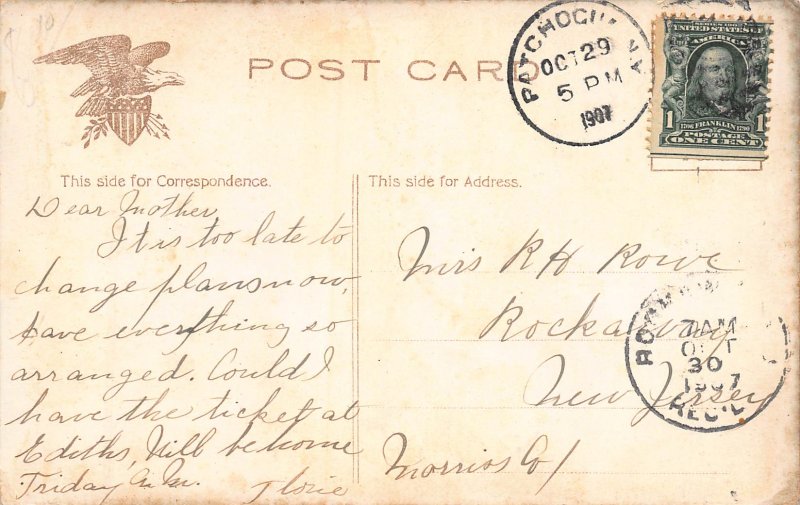 POST CARD
PATCHOGUE, N.Y.
OCT 29
5 PM
1907
SERIES 1902
UNITED STATES OF
AMERICA
1 1706 FRANKLIN 1790 1
POSTAGE
ONE CENT
This side for Correspondence.
Dear Mother
It is too late to
change plans now,
have everything so
arranged. Could I
have the ticket at
Ediths, Will be home
Friday A.M.
This side for Address.
Mrs R H Rowe
Rockaway
New Jersey
Morris Co/
7 AM
OCT
30
1907
REC'D